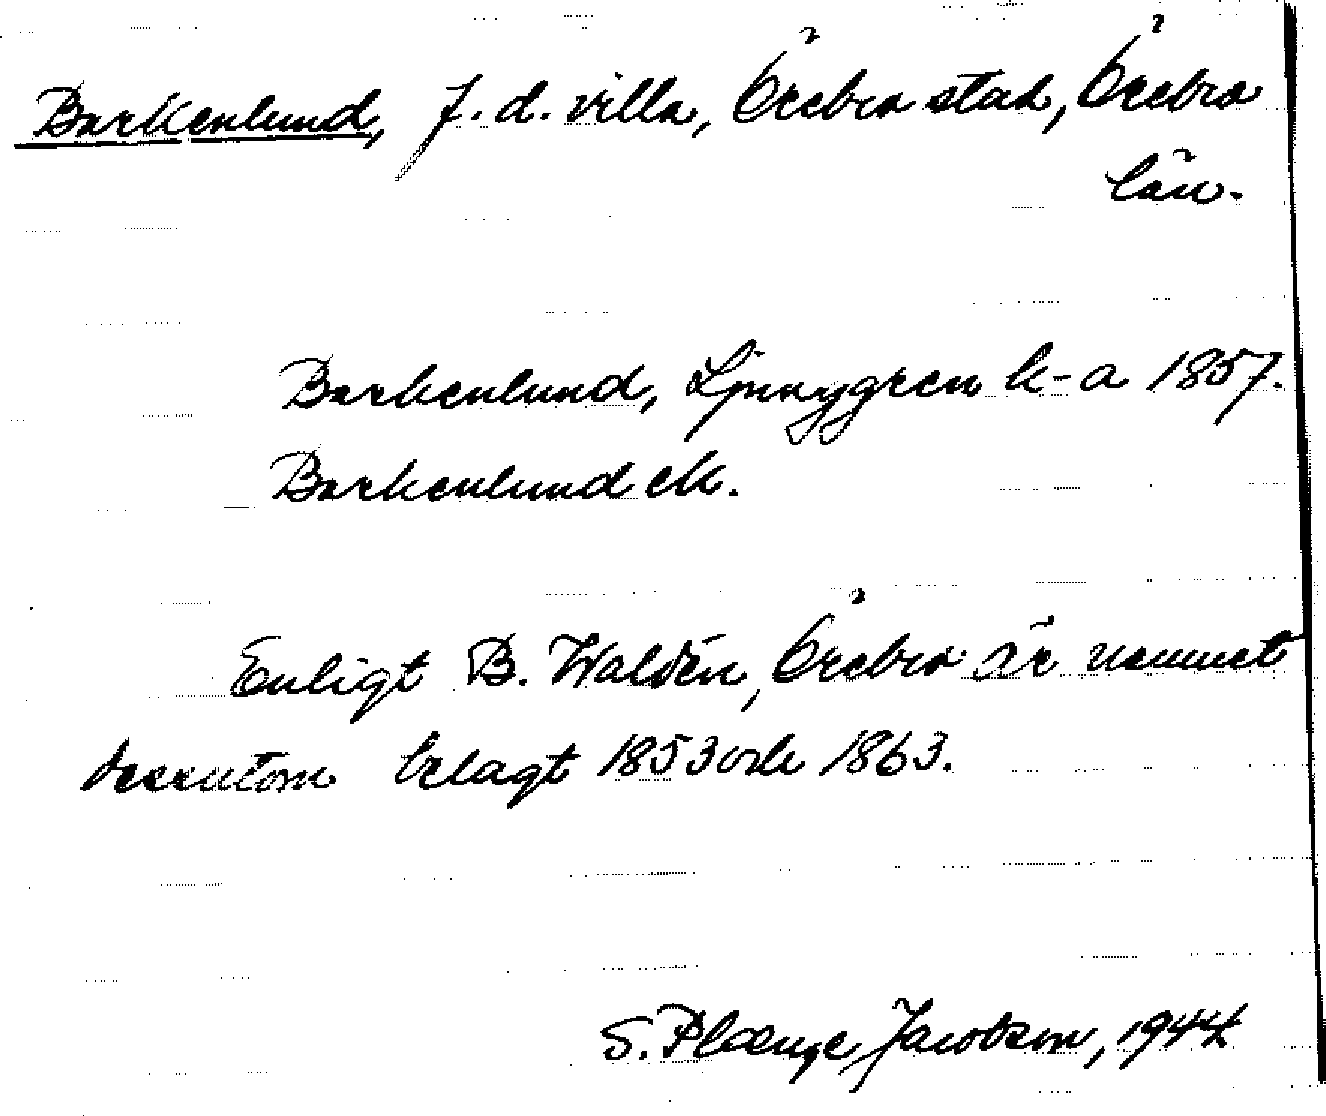 Barkenlund, f. d. villa, Örebro stad, Örebro
län.
Barkenlund, Ljunggren k-a 1857.
Barkenlund ek.
Enligt B. Waldén, Örebro är namnet
dessutom belagt 1853 och 1863.
S. Plænge Jacobson, 1944